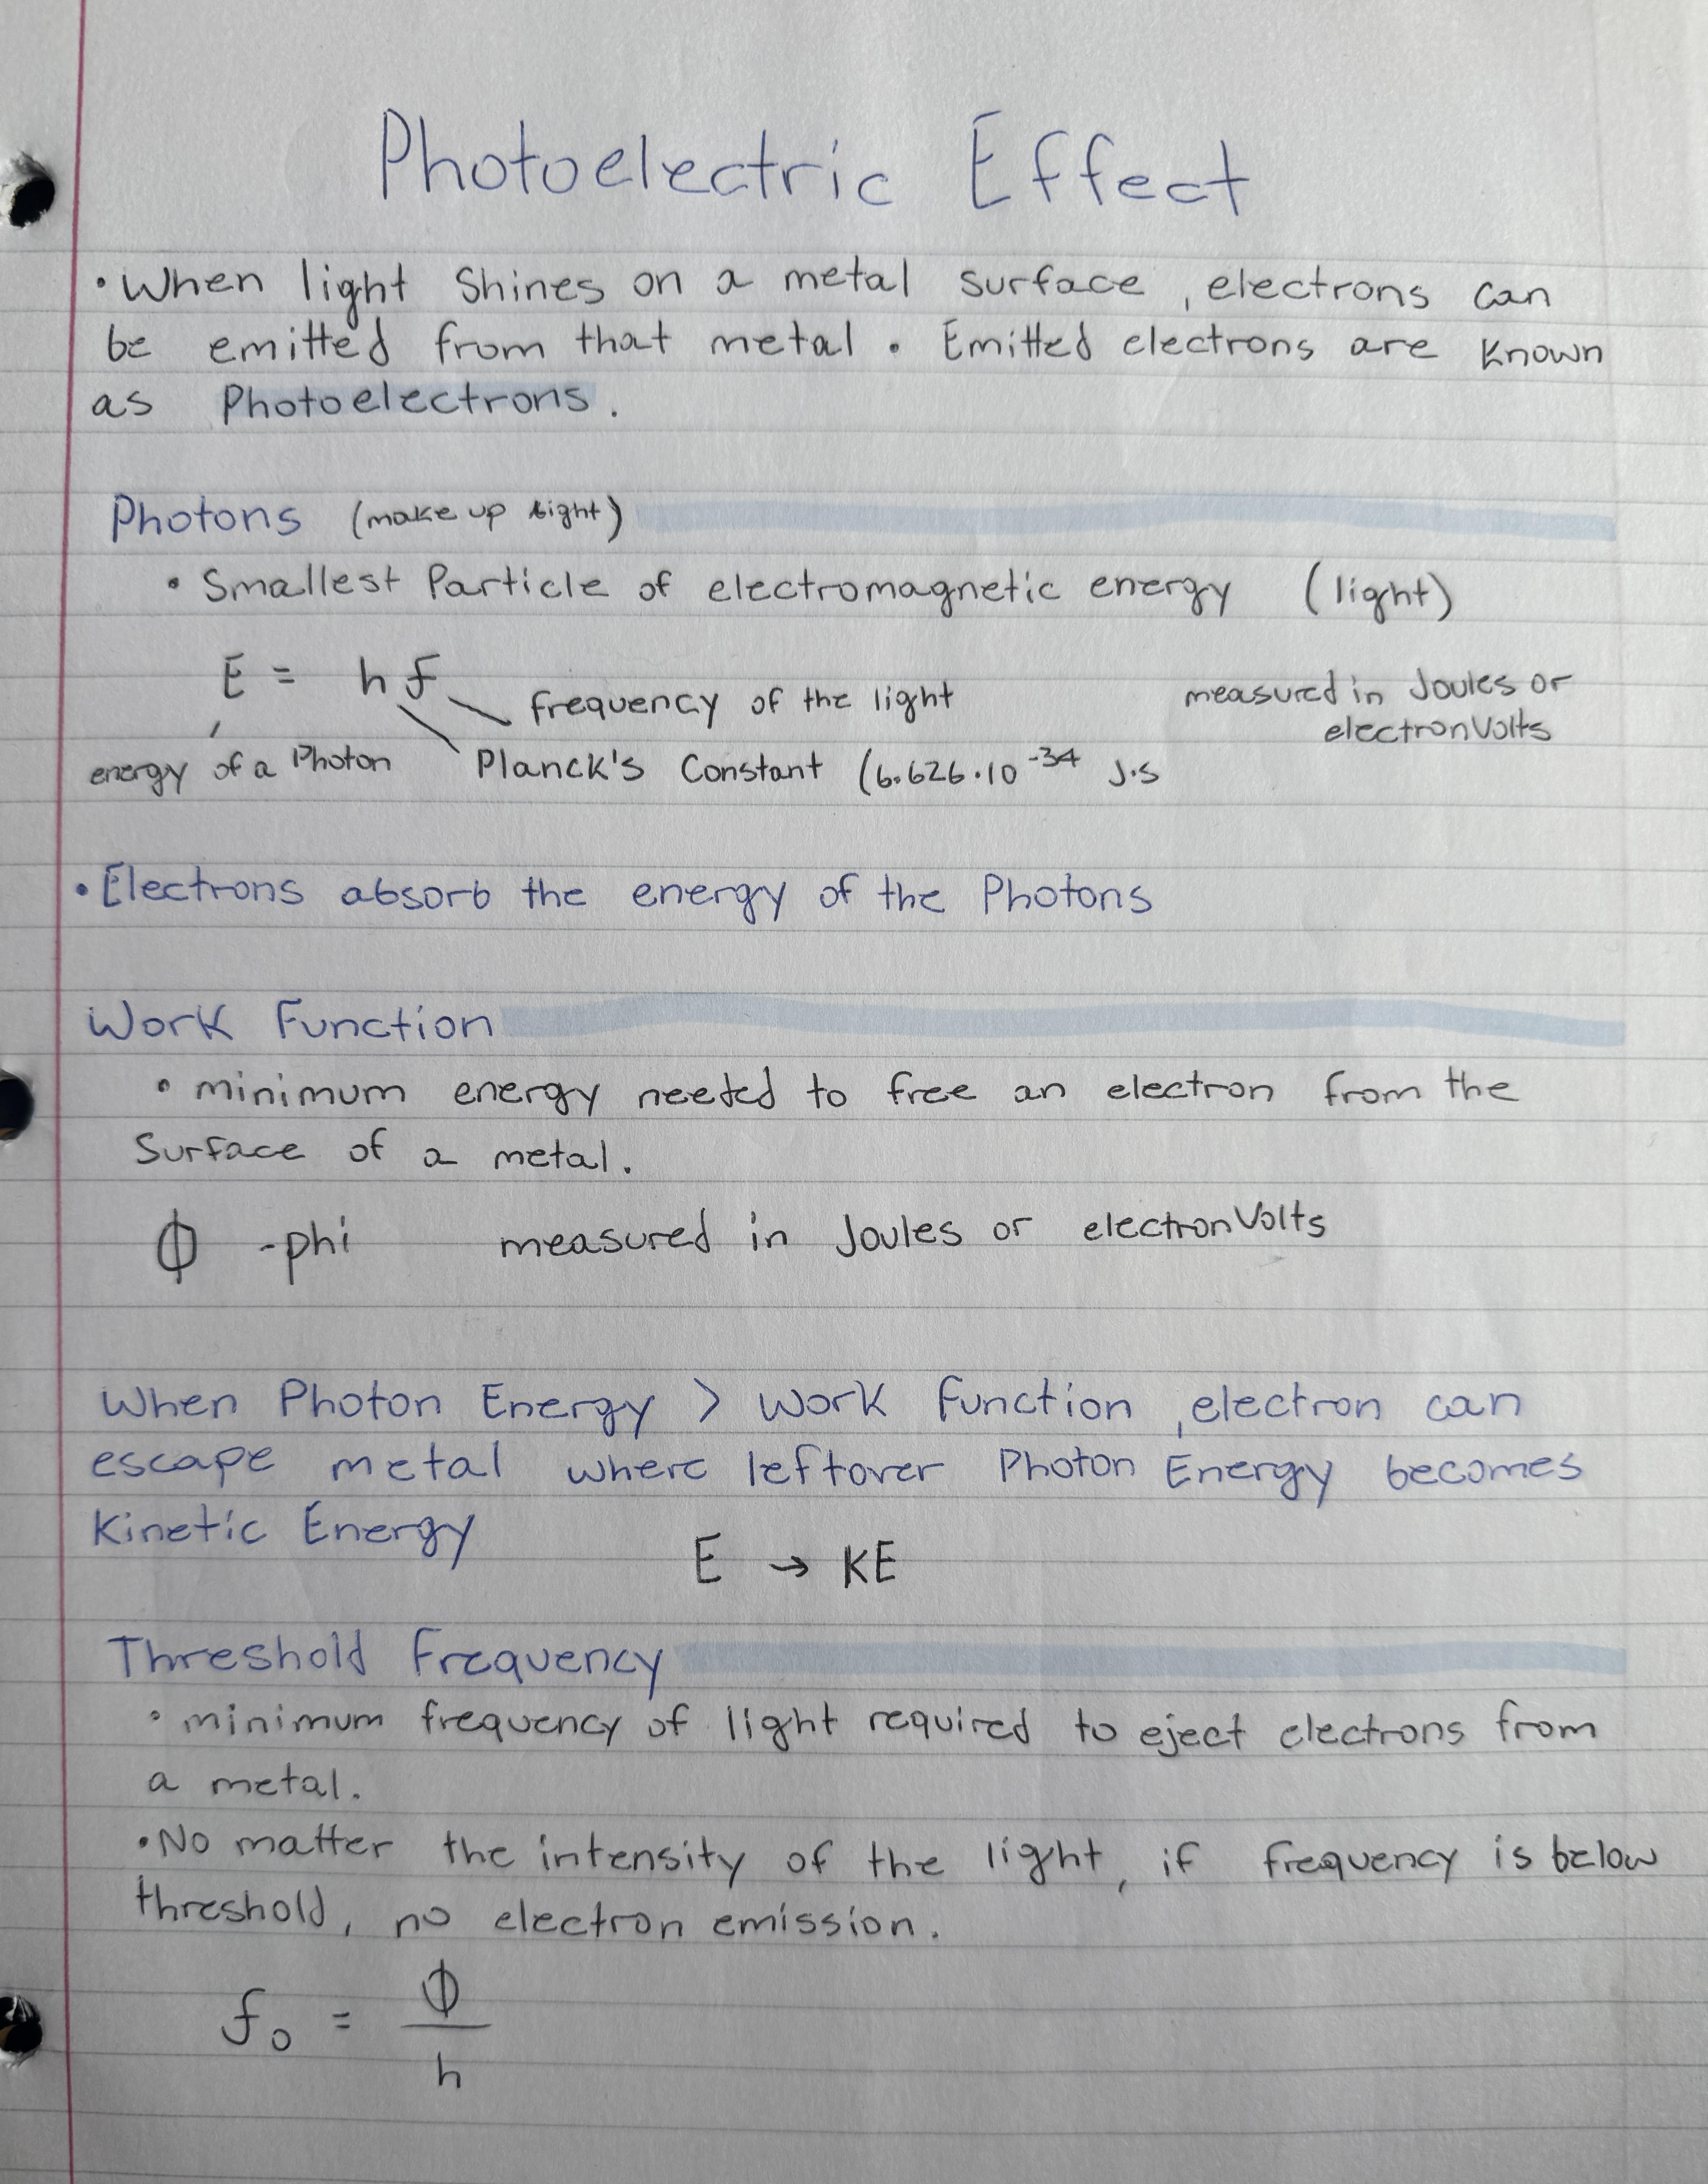 Photoelectric Effect
• When light shines on a metal surface, electrons can
be emitted from that metal. Emitted electrons are known
as Photoelectrons.
Photons (make up light)
• Smallest Particle of electromagnetic energy (light)
E = hf
frequency of the light
measured in Joules or
electronVolts
energy of a Photon
Planck's Constant (6.626·10^-34 J·s
• Electrons absorb the energy of the Photons
Work Function
• minimum energy needed to free an electron from the
Surface of a metal.
Φ -phi measured in Joules or electronVolts
When Photon Energy > Work Function, electron can
escape metal where leftover Photon Energy becomes
Kinetic Energy
E → KE
Threshold Frequency
• minimum frequency of light required to eject electrons from
a metal.
• No matter the intensity of the light, if frequency is below
threshold, no electron emission.
f₀ = Φ/h